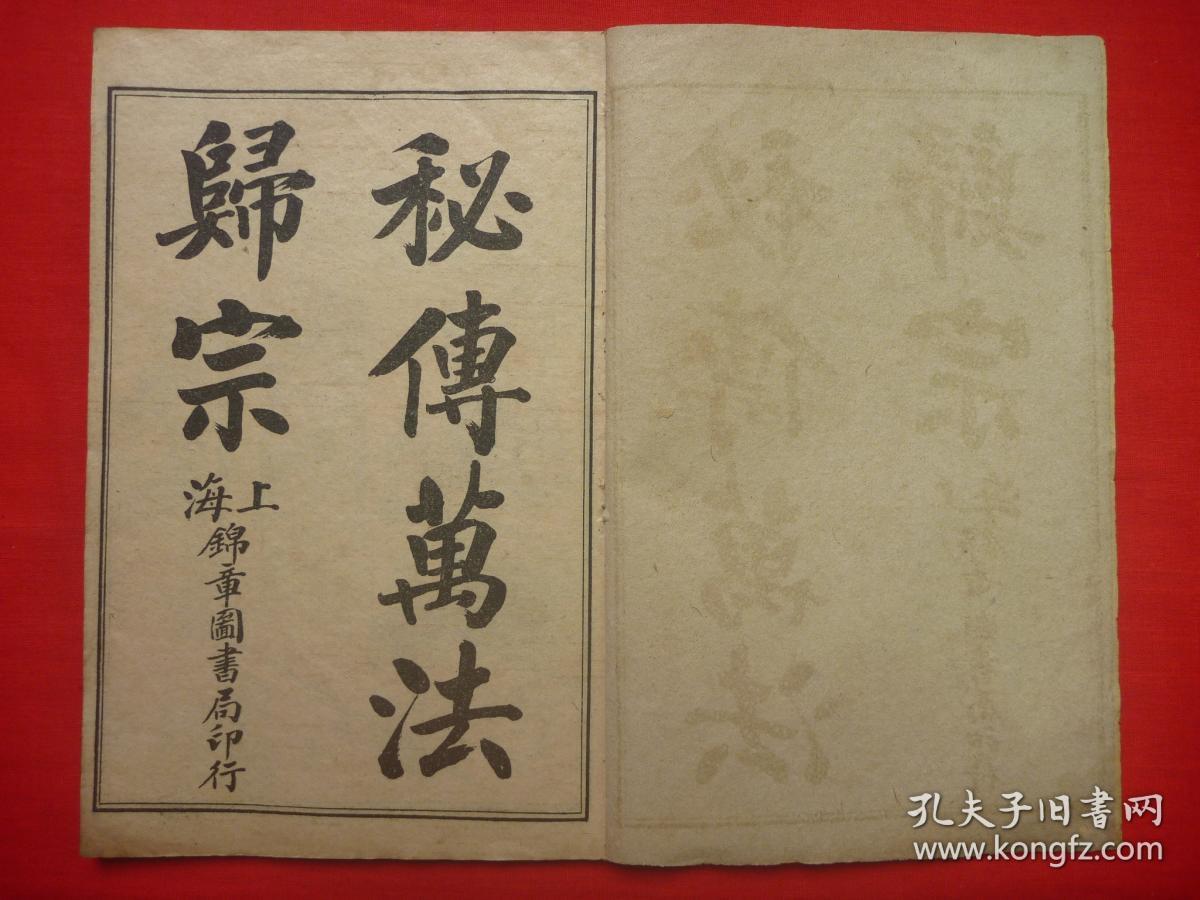 秘傳萬法
歸宗
上海錦章圖書局印行
孔夫子旧书网
www.kongfz.com